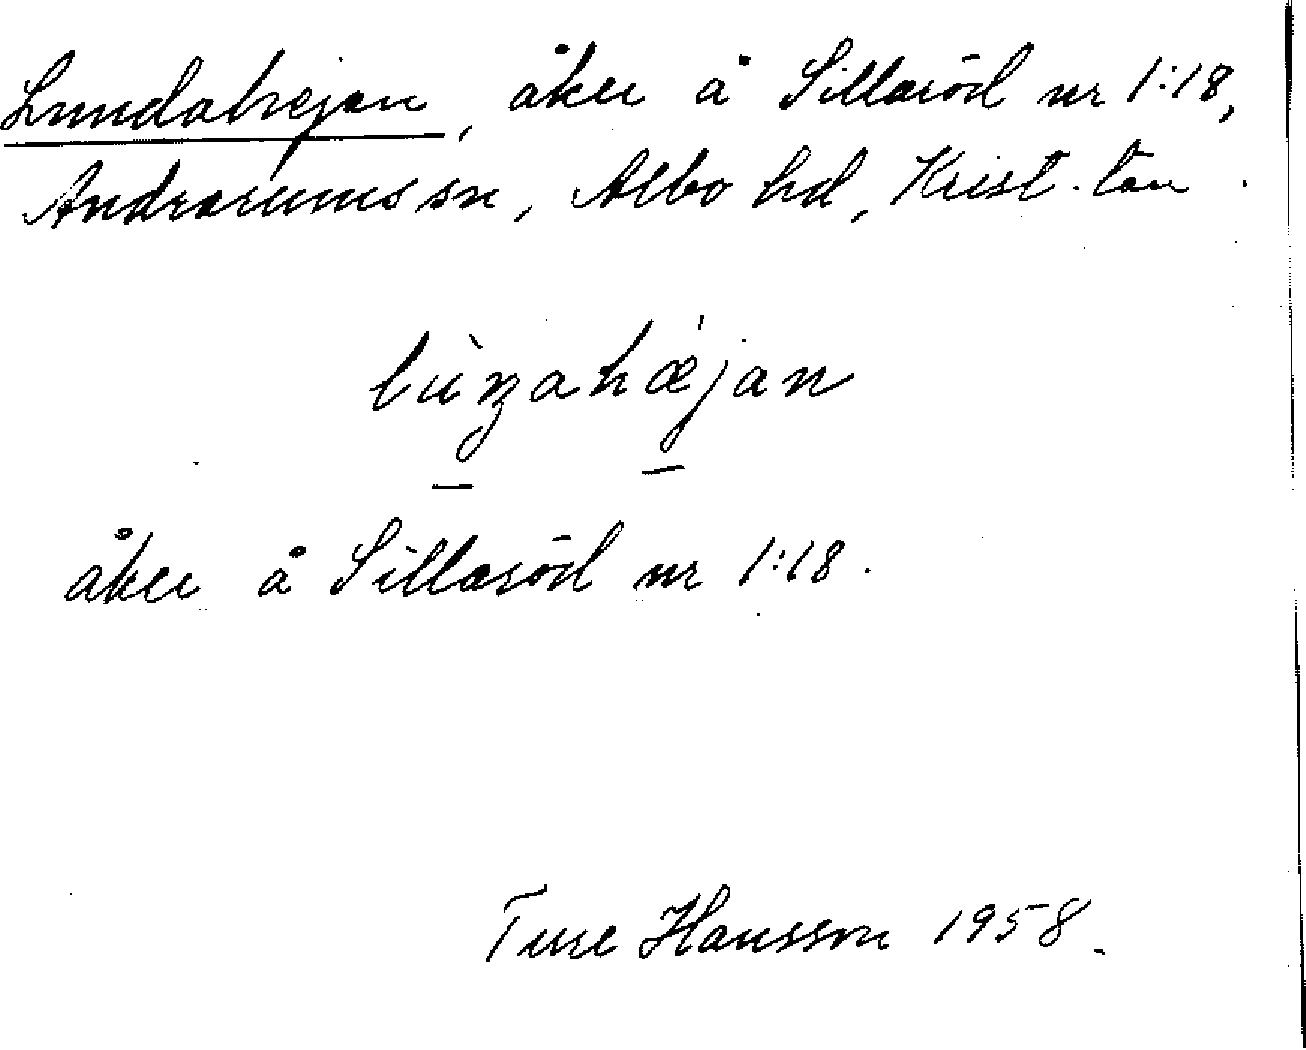 Lundahejan, åker å Sillaröd nr 1:18,
Andrarums sn, Albo hd, Krist. län.
åker å Sillaröd nr 1:18.
Ture Hansson 1958.